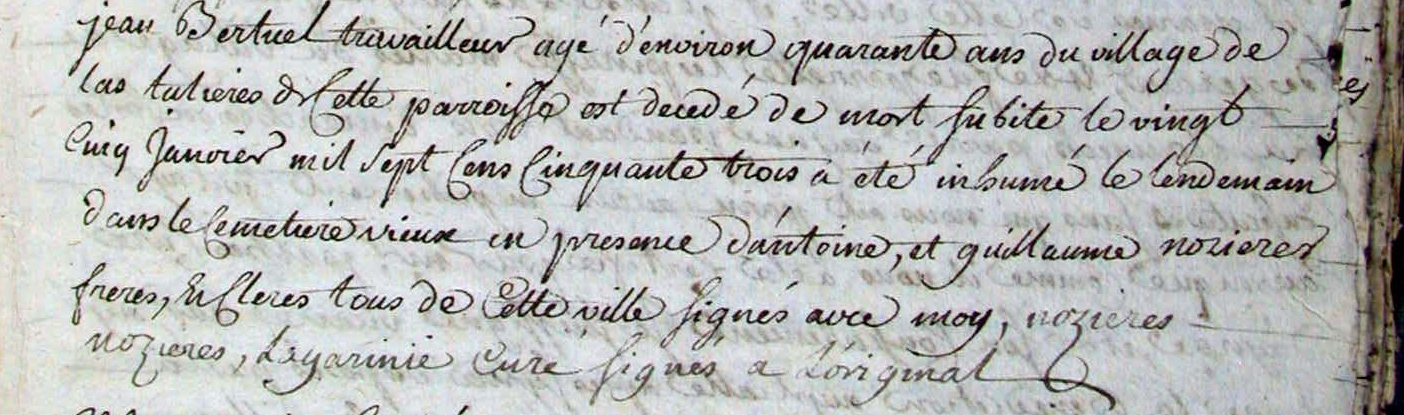 jean Bertuel travailleur agé d'environ quarante ans du village de
las tulieres de Cette parroisse est decedé de mort subite le vingt
Cinq Janvier mil sept Cens Cinquante trois a été inhumé le lendemain
dans le Cemetiere vieux en presence d'antoine, et guillaume nozieres
freres, Clercs tous de Cette ville signés avec moy, nozieres
nozieres, Lagarinie Curé signés a L'original